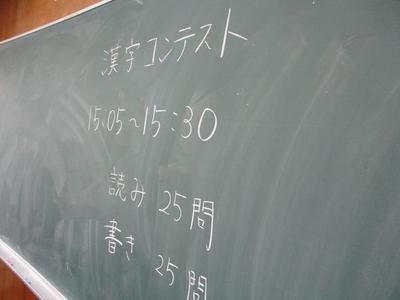 漢字コンテスト
15:05~15:30
読み 25問
書き 25問